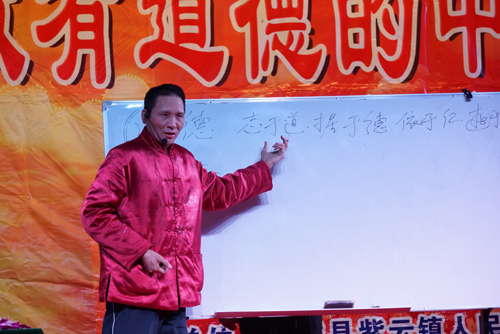 有道德的中
德 志于道 据于德 依于仁 遊于
县紫云镇人民